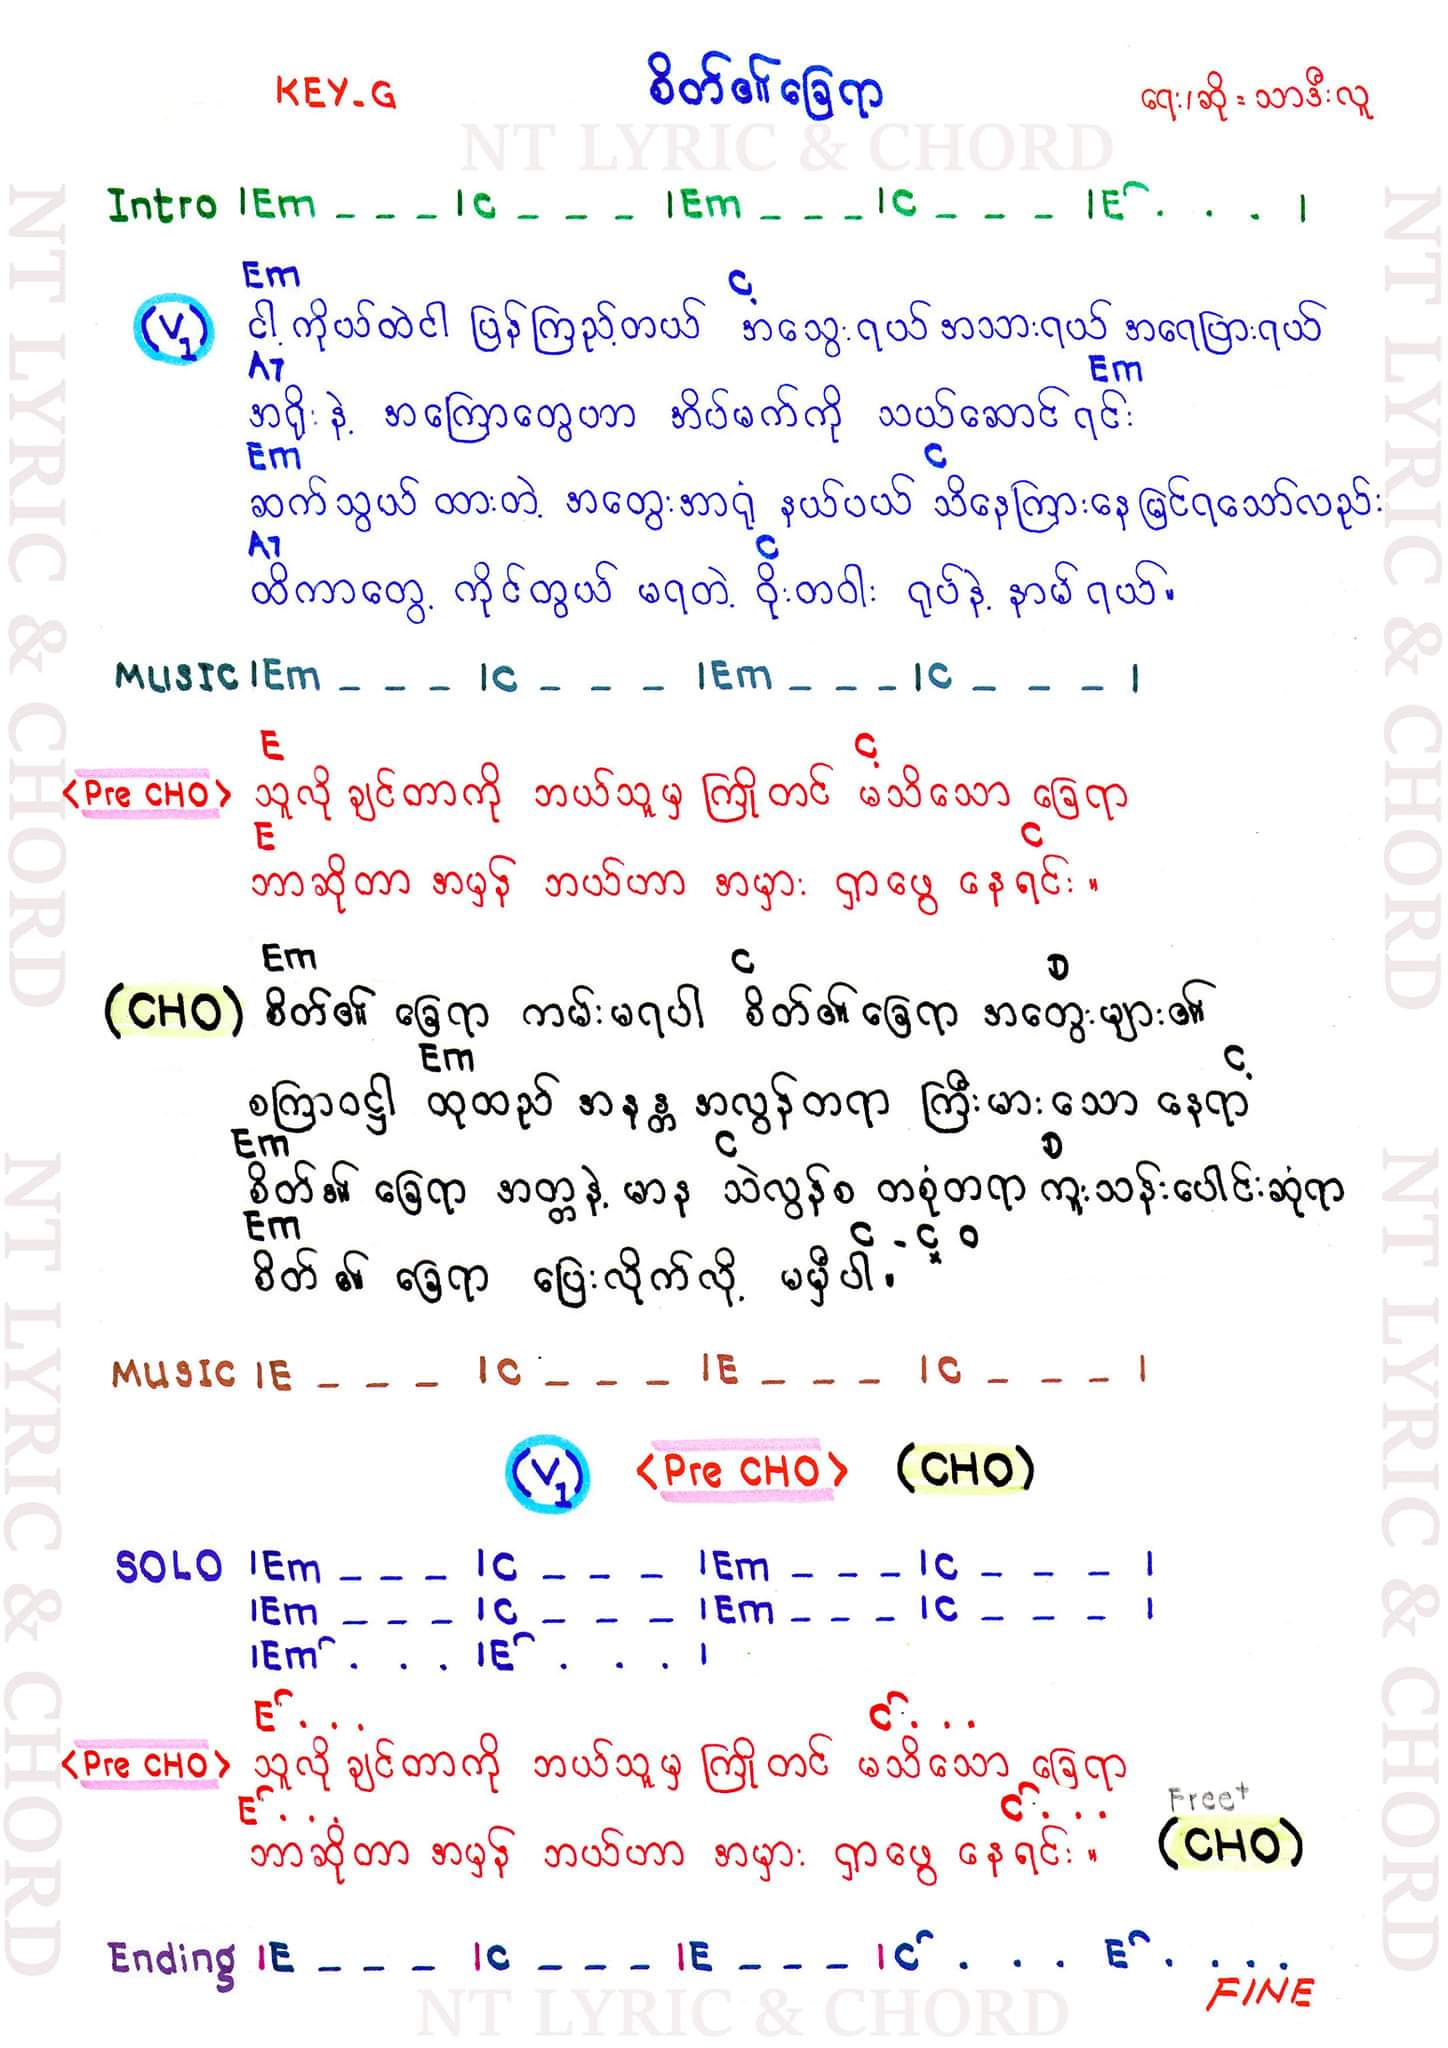 KEY-G
စိတ်၏ခြေရာ
ရေး/ဆို = သာဒီးလူ
NT LYRIC & CHORD
Intro |Em _ _ _ |C _ _ _ |Em _ _ _ |C _ _ _ |E . . . |
Em C
(V1) ငါ့ကိုယ်ထဲငါ ပြန်ကြည့်တယ် အသွေးရယ် အသားရယ် အရေပြားရယ်
A7 Em
အရိုးနဲ့ အကြောတွေဟာ အိပ်မက်ကို သယ်ဆောင်ရင်း
Em C
ဆက်သွယ်ထားတဲ့ အတွေးအာရုံ နယ်ပယ် သိနေကြားနေမြင်ရသော်လည်း
A7 C
ထိကာတွေ့ ကိုင်တွယ် မရတဲ့ ဝိုးတဝါး ရုပ်နဲ့ နာမ်ရယ်။
MUSIC |Em _ _ _ |C _ _ _ |Em _ _ _ |C _ _ _ |
E C
<Pre CHO> သူလိုချင်တာကို ဘယ်သူမှ ကြိုတင် မသိသော ခြေရာ
E C
ဘာဆိုတာ အမှန် ဘယ်ဟာ အမှား ရှာဖွေ နေရင်း။
Em C D
(CHO) စိတ်၏ ခြေရာ ကမ်းမရပါ စိတ်၏ခြေရာ အတွေးများ၏
Em C
စကြာဝဠာ ထုထည် အနန္တ အလွန်တရာ ကြီးမားသော နေရာ
Em C D
စိတ်၏ ခြေရာ အတ္တနဲ့ မာန သဲလွန်စ တစုံတရာ ကူးသန်းပေါင်းဆုံရာ
Em C - C D
စိတ်၏ ခြေရာ ပြေးလိုက်လို့ မမှီပါ။
MUSIC |E _ _ _ |C _ _ _ |E _ _ _ |C _ _ _ |
(V1) <Pre CHO> (CHO)
SOLO |Em _ _ _ |C _ _ _ |Em _ _ _ |C _ _ _ |
|Em _ _ _ |C _ _ _ |Em _ _ _ |C _ _ _ |
|Em . . . |E . . . |
E . . . C . . .
<Pre CHO> သူလိုချင်တာကို ဘယ်သူမှ ကြိုတင် မသိသော ခြေရာ
E . . . C . . .
ဘာဆိုတာ အမှန် ဘယ်ဟာ အမှား ရှာဖွေ နေရင်း။
Free+
(CHO)
Ending |E _ _ _ |C _ _ _ |E _ _ _ |C . . . E . . . .
FINE
NT LYRIC & CHORD
NT LYRIC & CHORD
NT LYRIC & CHORD
NT LYRIC & CHORD
NT LYRIC & CHORD